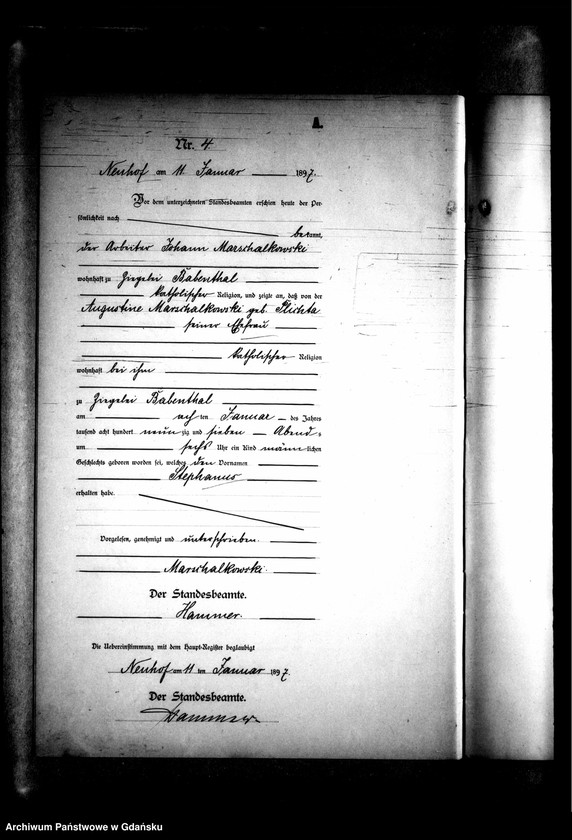 A.
Nr. 4
Neuhof am 11 Januar 1897.
Vor dem unterzeichneten Standesbeamten erschien heute der Per-
sönlichkeit nach
bekannt,
der Arbeiter Johann Marschalkowski
wohnhaft zu Ziegelei Babenthal
katholischer Religion, und zeigte an, daß von der
Augustine Marschalkowski geb. Plichta
seiner Ehefrau
katholischer Religion
wohnhaft bei ihm
zu Ziegelei Babenthal
am acht ten Januar des Jahres
tausend acht hundert neun zig und sieben Abend-
um sechs Uhr ein Kind männlichen
Geschlechts geboren worden sei, welches den Vornamen
Stephanus
erhalten habe.
Vorgelesen, genehmigt und unterschrieben.
Marschalkowski.
Der Standesbeamte.
Hammer.
Die Uebereinstimmung mit dem Haupt-Register beglaubigt
Neuhof am 11 ten Januar 1897
Der Standesbeamte.
Hammer
Archiwum Państwowe w Gdańsku